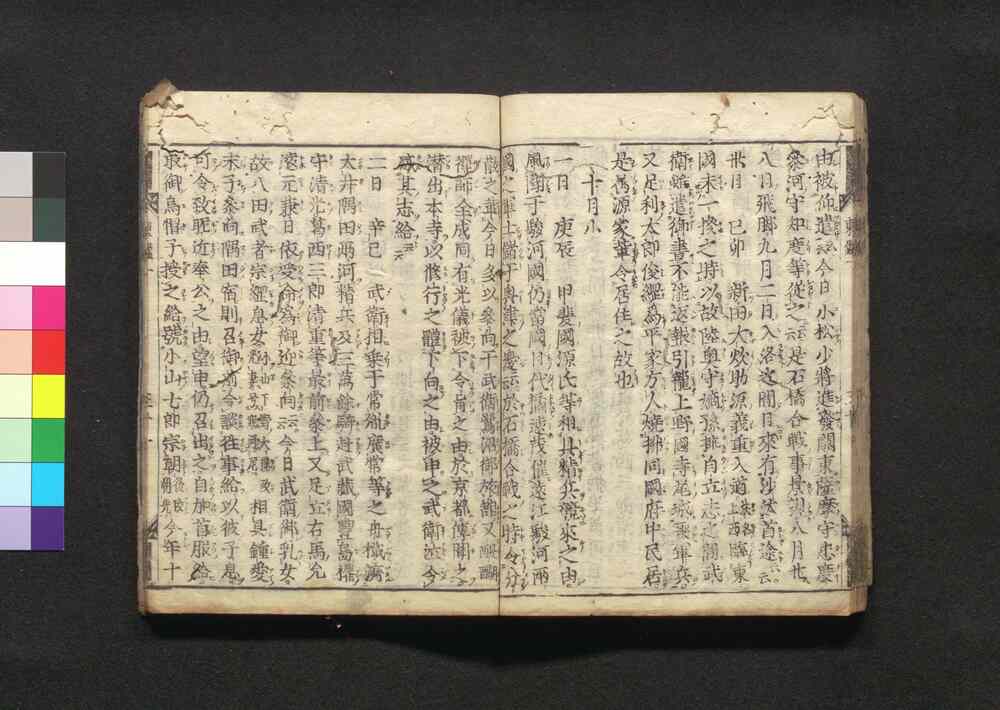 由被仰遣云云今日小松少將進發關東薩摩守忠度
參河守知度等從之云云是石橋合戰事景親八月廿
八日飛脚九月二日入洛之間日來有沙汰首途云云
卅日 己卯 新田大炊助源義重入道上西臨東
國未一揆之時以故陸奥守嫡孫挾自立志之間武
衛雖遣御書不能返報引籠上野國寺尾城聚軍兵
又足利太郎俊綱爲平家方人燒拂同國府中民居
是爲源家輩令居住之故也
十月小
一日 庚辰 甲斐國源氏等相具精兵競來之由
風聞于駿河國仍當國目代橘遠茂催遠江駿河兩
國之軍士儲于奥津之邊云云於石橋合戰之時令分
散之輩今日多以參向于武衛鷺沼御旅館又醍醐
禪師全成同有光儀被下令旨之由於京都傳聞之
潛出本寺以修行之體下向之由被申之武衛泣令
感其志給云云
二日 辛巳 武衛相乗于常胤廣常等之舟檝濟
大井隅田兩河精兵及三萬餘騎赴武藏國豊島權
守清光葛西三郎清重等最前參上又足立右馬允
遠元兼日依受命爲御迎參向云云今日武衛御乳母
故八田武者宗綱息女小山下野大掾政光妻號寒河尼相具鍾愛
末子參向隅田宿則召御前令談往事給以彼子息
可令致昵近奉公之由望申仍召出之自加首服給
取御烏帽子授之給號小山七郎宗朝後改朝光今年十